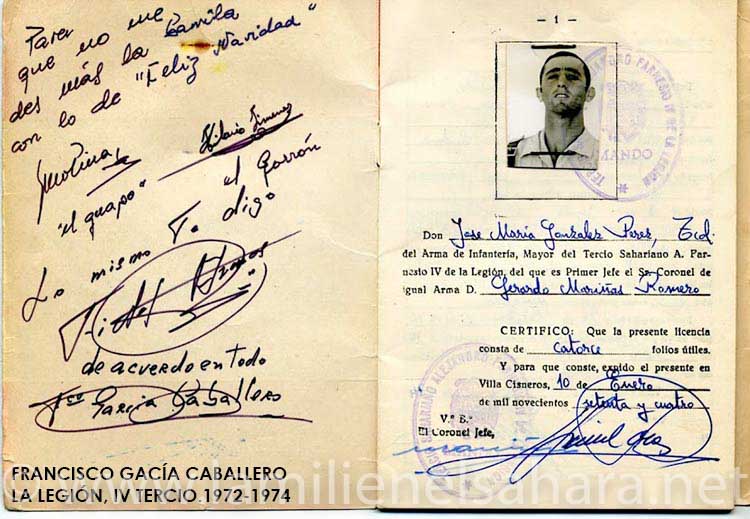 Para
que no me
des más la Bamvla
con lo de "Feliz Navidad"
Hilario Jimenez
Molina
"el guapo"
"el Garrón
Lo mismo Te digo
Fidel
de acuerdo en todo
Fco Garcia Caballero
FRANCISCO GACÍA CABALLERO
LA LEGIÓN, IV TERCIO.1972-1974
— 1 —
MANDO
Don Jose María Gonzalez Perez, Tcol.
del Arma de Infantería, Mayor del Tercio Sahariano A. Far-
nesio IV de la Legión, del que es Primer Jefe el Sr. Coronel de
igual Arma D. Gerardo Mariñas Romero
CERTIFICO: Que la presente licencia
consta de catorce folios útiles.
Y para que conste, expido el presente en
Villa Cisneros, 10 de Enero
de mil novecientos setenta y cuatro
V.º B.º
El Coronel Jefe,
www.lamilienelsahara.net